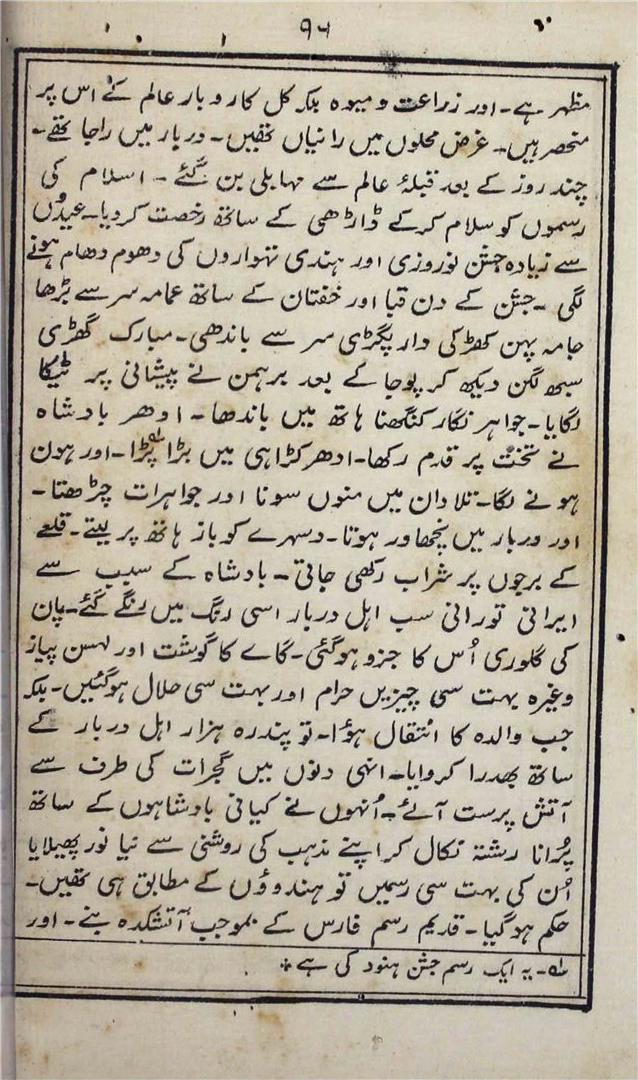 ۹۵
مظہر ہے۔ اور زراعت و میوہ بلکہ کل کاروبار عالم کے اس پر
منحصر ہیں۔ غرض محلوں میں رانیاں تھیں۔ دربار میں راجا تھے۔
چند روز کے بعد قبلۂ عالم سے مہابلی بن گئے۔ اسلام کی
رسموں کو سلام کرکے ڈاڑھی کے ساتھ رخصت کردیا۔ عیدوں
سے زیادہ جشن نوروزی اور ہندی تہواروں کی دھوم دھام ہونے
لگی۔ جشن کے دن قبا اور خفتان کے ساتھ عمامہ سر سے بڑھا
جامہ پہن کھڑکی دار پگڑی سر سے باندھی۔ مبارک گھڑی
سبھ لگن دیکھ کر پوجا کے بعد برہمن نے پیشانی پر ٹیکا
لگایا۔ جواہر نگار کنگھنا ہاتھ میں باندھا۔ اودھر بادشاہ
نے تخت پر قدم رکھا۔ ادھر کڑاہی میں بڑا پڑا۔ اور ہون
ہونے لگا۔ تلادان میں منوں سونا اور جواہرات چڑھتا۔
اور دربار میں نچھاور ہوتا۔ دسہرے کو باز ہاتھ پر لیتے۔ قلعے
کے برجوں پر شراب رکھی جاتی۔ بادشاہ کے سبب سے
ایرانی تورانی سب اہل دربار اسی رنگ میں رنگے گئے۔ پان
کی گلوری اُس کا جزو ہوگئی۔ گاے کا گوشت اور لہسن پیاز
وغیرہ بہت سی چیزیں حرام اور بہت سی حلال ہوگئیں۔ بلکہ
جب والدہ کا انتقال ہؤا۔ تو پندرہ ہزار اہل دربار کے
ساتھ بھدرا کروایا۔ انہی دنوں میں گجرات کی طرف سے
آتش پرست آئے۔ اُنہوں نے کیانی بادشاہوں کے ساتھ
پُرانا رشتہ نکال کر اپنے مذہب کی روشنی سے نیا نور پھیلایا
اُن کی بہت سی رسمیں تو ہندوؤں کے مطابق ہی تھیں۔
حکم ہوگیا۔ قدیم رسم فارس کے بموجب آتشکدہ بنے۔ اور
۱؎۔ یہ ایک رسم جشن ہنود کی ہے٭